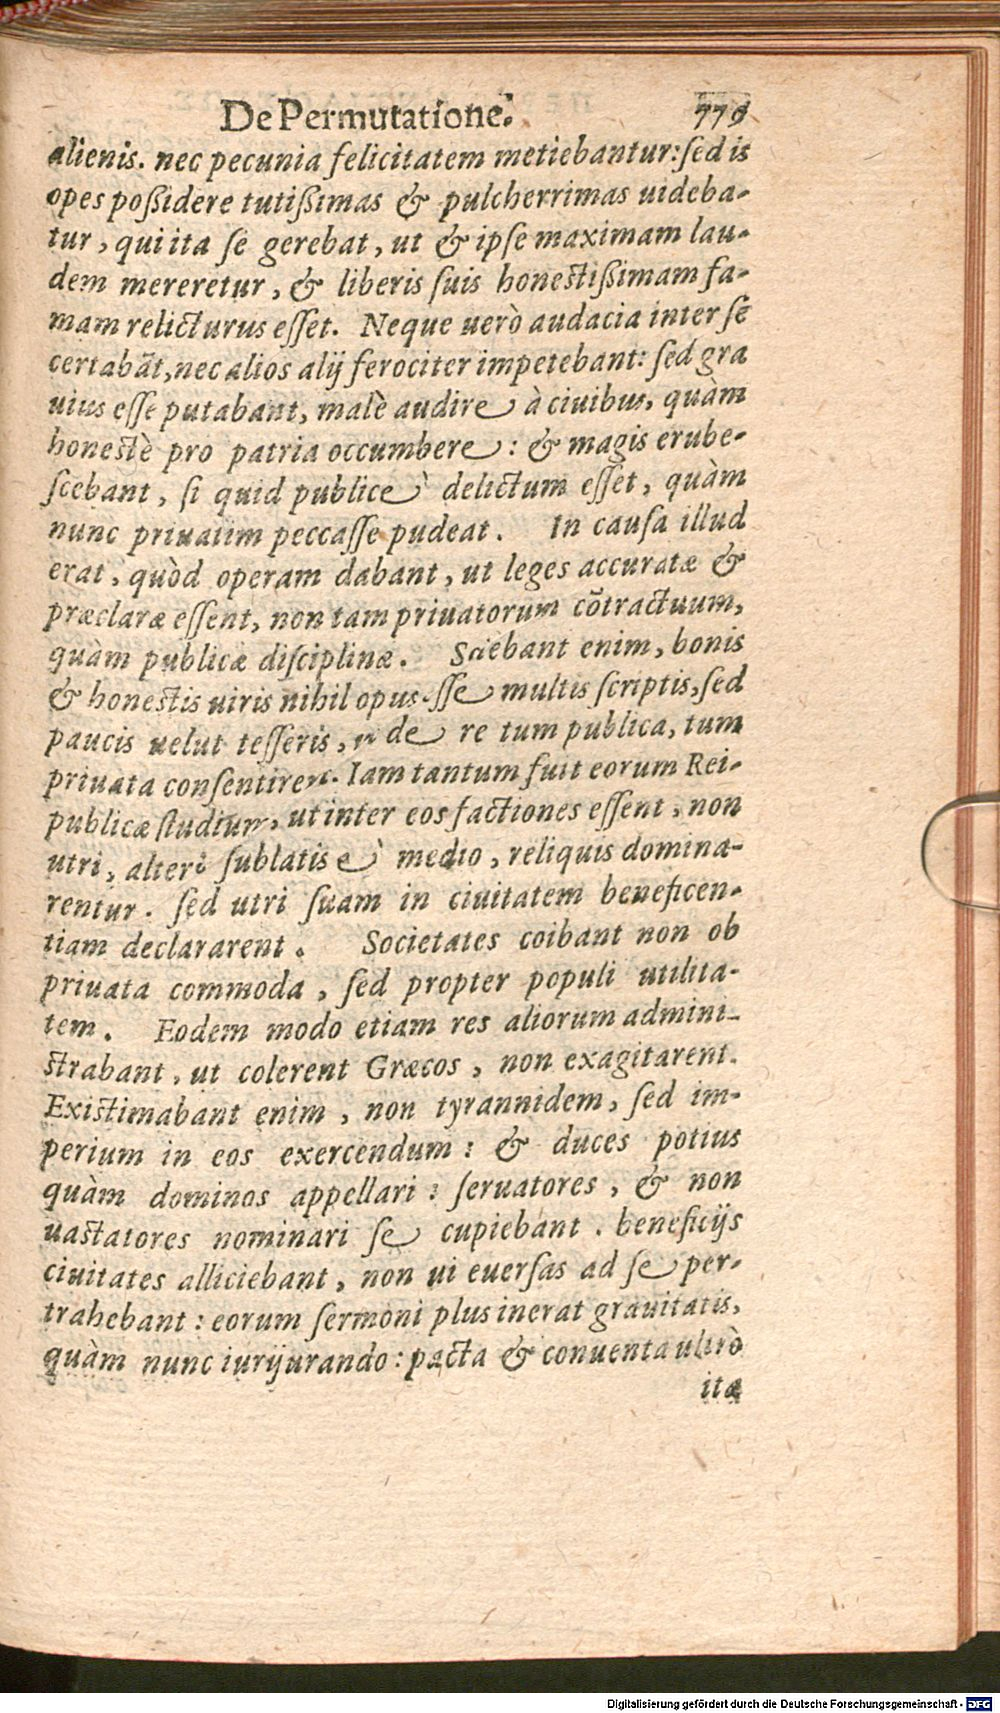 De Permutatione.
alienis. nec pecunia felicitatem metiebantur: sed is
opes poſſidere tutiſſimas & pulcherrimas uideba-
tur, qui ita ſe gerebat, ut & ipſe maximam lau-
dem mereretur, & liberis ſuis honeſtiſſimam fa-
mam relicturus eſſet. Neque uerò audacia inter ſe
certabãt, nec alios alij ferociter impetebant: ſed gra
uius eſſe putabant, malè audire à ciuibus, quàm
honeſtè pro patria occumbere: & magis erube-
ſcebant, ſi quid publicè delictum eſſet, quàm
nunc priuatim peccaſſe pudeat. In cauſa illud
erat, quòd operam dabant, ut leges accuratæ &
præclaræ eſſent, non tam priuatorum cõtractuum,
quàm publicæ diſciplinæ. Sciebant enim, bonis
& honeſtis uiris nihil opus eſſe multis ſcriptis, ſed
paucis uelut teſſeris, de re tum publica, tum
priuata conſentirent. Iam tantum fuit eorum Rei-
publicæ ſtudium, ut inter eos factiones eſſent, non
utri, alteris ſublatis è medio, reliquis domina-
rentur. ſed utri ſuam in ciuitatem beneficen-
tiam declararent. Societates coibant non ob
priuata commoda, ſed propter populi utilita-
tem. Eodem modo etiam res aliorum admini-
ſtrabant, ut colerent Græcos, non exagitarent.
Exiſtimabant enim, non tyrannidem, ſed im-
perium in eos exercendum: & duces potius
quàm dominos appellari: ſeruatores, & non
uaſtatores nominari ſe cupiebant. beneficijs
ciuitates alliciebant, non ui euerſas ad ſe per-
trahebant: eorum ſermoni plus inerat grauitatis,
quàm nunc iurijurando: pacta & conuenta ultrò
ita
Digitalisierung gefördert durch die Deutsche Forschungsgemeinschaft - DFG